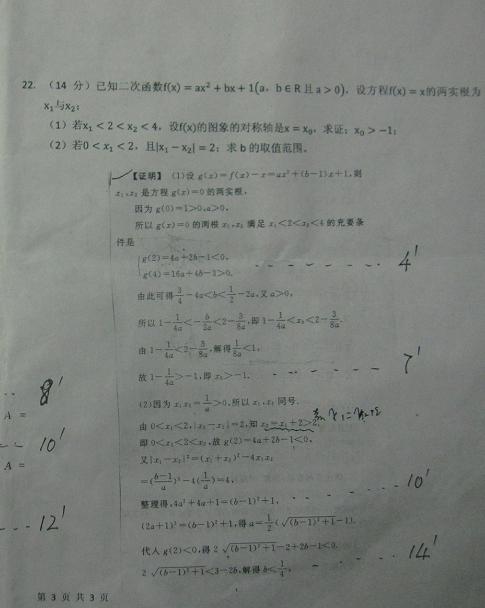 22. (14 分) 已知二次函数f(x) = ax² + bx + 1(a, b∈R 且 a > 0), 设方程f(x) = x的两实根为
x₁与x₂;
(1) 若x₁ < 2 < x₂ < 4, 设f(x)的图象的对称轴是x = x₀, 求证: x₀ > -1;
(2) 若0 < x₁ < 2, 且|x₁ - x₂| = 2; 求 b 的取值范围。
【证明】 (1)设 g(x)=f(x)-x=ax²+(b-1)x+1,则
x₁,x₂ 是方程 g(x)=0 的两实根,
因为 g(0)=1>0,a>0,
所以 g(x)=0 的两根 x₁,x₂ 满足 x₁<2<x₂<4 的充要条
件是
g(2)=4a+2b-1<0,
g(4)=16a+4b-3>0. 4'
由此可得 3/4-4a<b<1/2-2a,又 a>0,
所以 1-1/4a<-b/2a<2-3/8a,即 1-1/4a<x₀<2-3/8a.
由 1-1/4a<2-3/8a,解得 1/8a<1,
故 1-1/4a>-1,即 x₀>-1. 7'
(2)因为 x₁x₂=1/a>0,所以 x₁,x₂ 同号.
由 0<x₁<2,|x₁-x₂|=2,知 x₂=x₁+2>2,
即 0<x₁<2<x₂,故 g(2)=4a+2b-1<0,
又|x₁-x₂|²=(x₁+x₂)²-4x₁x₂
=(b-1/a)²-4(1/a)=4,
整理得,4a²+4a+1=(b-1)²+1, 10'
(2a+1)²=(b-1)²+1,得 a=1/2(√(b-1)²+1-1).
代入 g(2)<0,得 2√(b-1)²+1-2+2b-1<0.
2√(b-1)²+1<3-2b,解得 b<1/4. 14'
8'
A =
10'
A =
12'
第 3 页 共 3 页